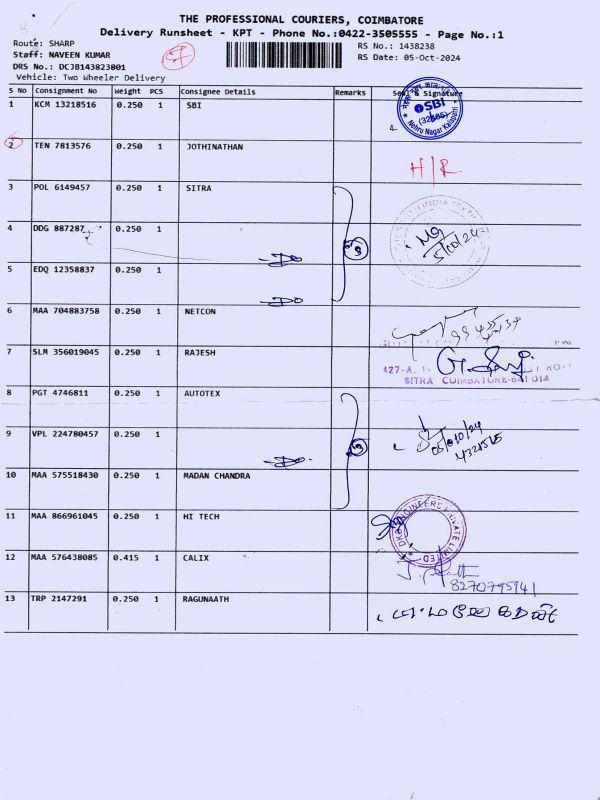 THE PROFESSIONAL COURIERS, COIMBATORE
Delivery Runsheet - KPT - Phone No.:0422-3505555 - Page No.:1
Route: SHARP
RS No.: 1438238
Staff: NAVEEN KUMAR
RS Date: 05-Oct-2024
DRS No.: DCJB143823801
Vehicle: Two Wheeler Delivery
S No Consignment No Weight PCS Consignee Details Remarks Seal & Signature
1 KCM 13218516 0.250 1 SBI
SBI
Nehru Nagar Kalapatti
2 TEN 7813576 0.250 1 JOTHINATHAN
H/R
3 POL 6149457 0.250 1 SITRA
4 DDG 887287 0.250 1 -Do
5/10/24
3
5 EDQ 12358837 0.250 1 -Do
6 MAA 704883758 0.250 1 NETCON
7 SLM 356019045 0.250 1 RAJESH
SITRA COIMBATORE-641 014
8 PGT 4746811 0.250 1 AUTOTEX
9 VPL 224780457 0.250 1 -Do
3
05/10/24
10 MAA 575518430 0.250 1 MADAN CHANDRA
11 MAA 866961045 0.250 1 HI TECH
ENGINEERS PRIVATE LIMITED
12 MAA 576438085 0.415 1 CALIX
8270795941
13 TRP 2147291 0.250 1 RAGUNAATH